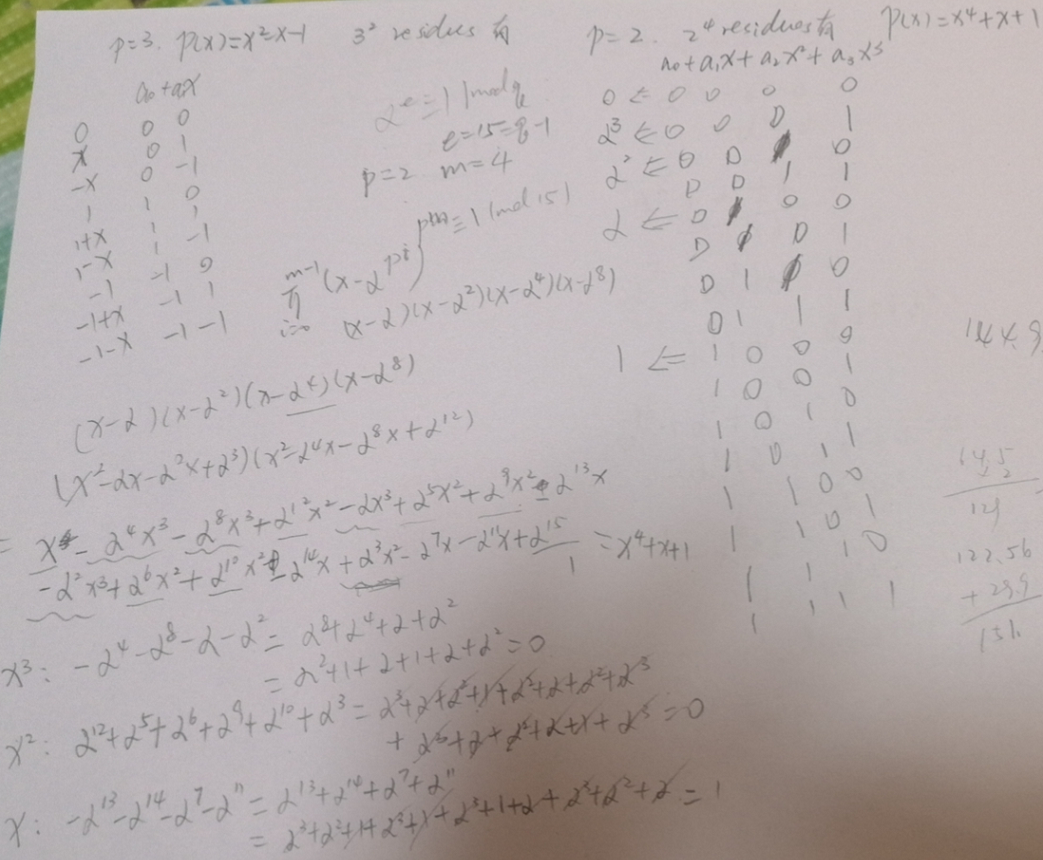 p=3. p(x)=x²-x-1 3² residues 有
a₀+a₁x
0 0 0
x 0 1
-x 0 -1
1 1 0
1+x 1 1
1-x 1 -1
-1 -1 0
-1+x -1 1
-1-x -1 -1
α^e≡1 (mod q
e=15=q-1
p=2 m=4
p^m≡1 (mod 15)
m-1
∏ (x-α^{p^i})
i=0
(x-α)(x-α²)(x-α⁴)(x-α⁸)
p=2. 2⁴ residues 有 p(x)=x⁴+x+1
a₀+a₁x+a₂x²+a₃x³
0 ⇐ 0 0 0 0
α³ ⇐ 0 0 0 1
α² ⇐ 0 0 1 0
0 0 1 1
α ⇐ 0 1 0 0
0 1 0 1
0 1 1 0
0 1 1 1
1 ⇐ 1 0 0 0
1 0 0 1
1 0 1 0
1 0 1 1
1 1 0 0
1 1 0 1
1 1 1 0
1 1 1 1
(x-α)(x-α²)(x-α⁴)(x-α⁸)
(x²-αx-α²x+α³)(x²-α⁴x-α⁸x+α¹²)
= x⁴-α⁴x³-α⁸x³+α¹²x²-αx³+α⁵x²+α⁹x²-α¹³x
-α²x³+α⁶x²+α¹⁰x²-α¹⁴x+α³x²-α⁷x-α¹¹x+α¹⁵ = x⁴+x+1
1
x³: -α⁴-α⁸-α-α² = α⁸+α⁴+α+α²
= α²+1+α+1+α+α²=0
x²: α¹²+α⁵+α⁶+α⁹+α¹⁰+α³ = α³+α+α²+1+α²+α+α²+α³
+ α³+α+α²+α+1+α³=0
x: -α¹³-α¹⁴-α⁷-α¹¹ = α¹³+α¹⁴+α⁷+α¹¹
= α³+α²+1+α³+1+α³+1+α+α³+α²+α = 1
144.9
14.5
122.56